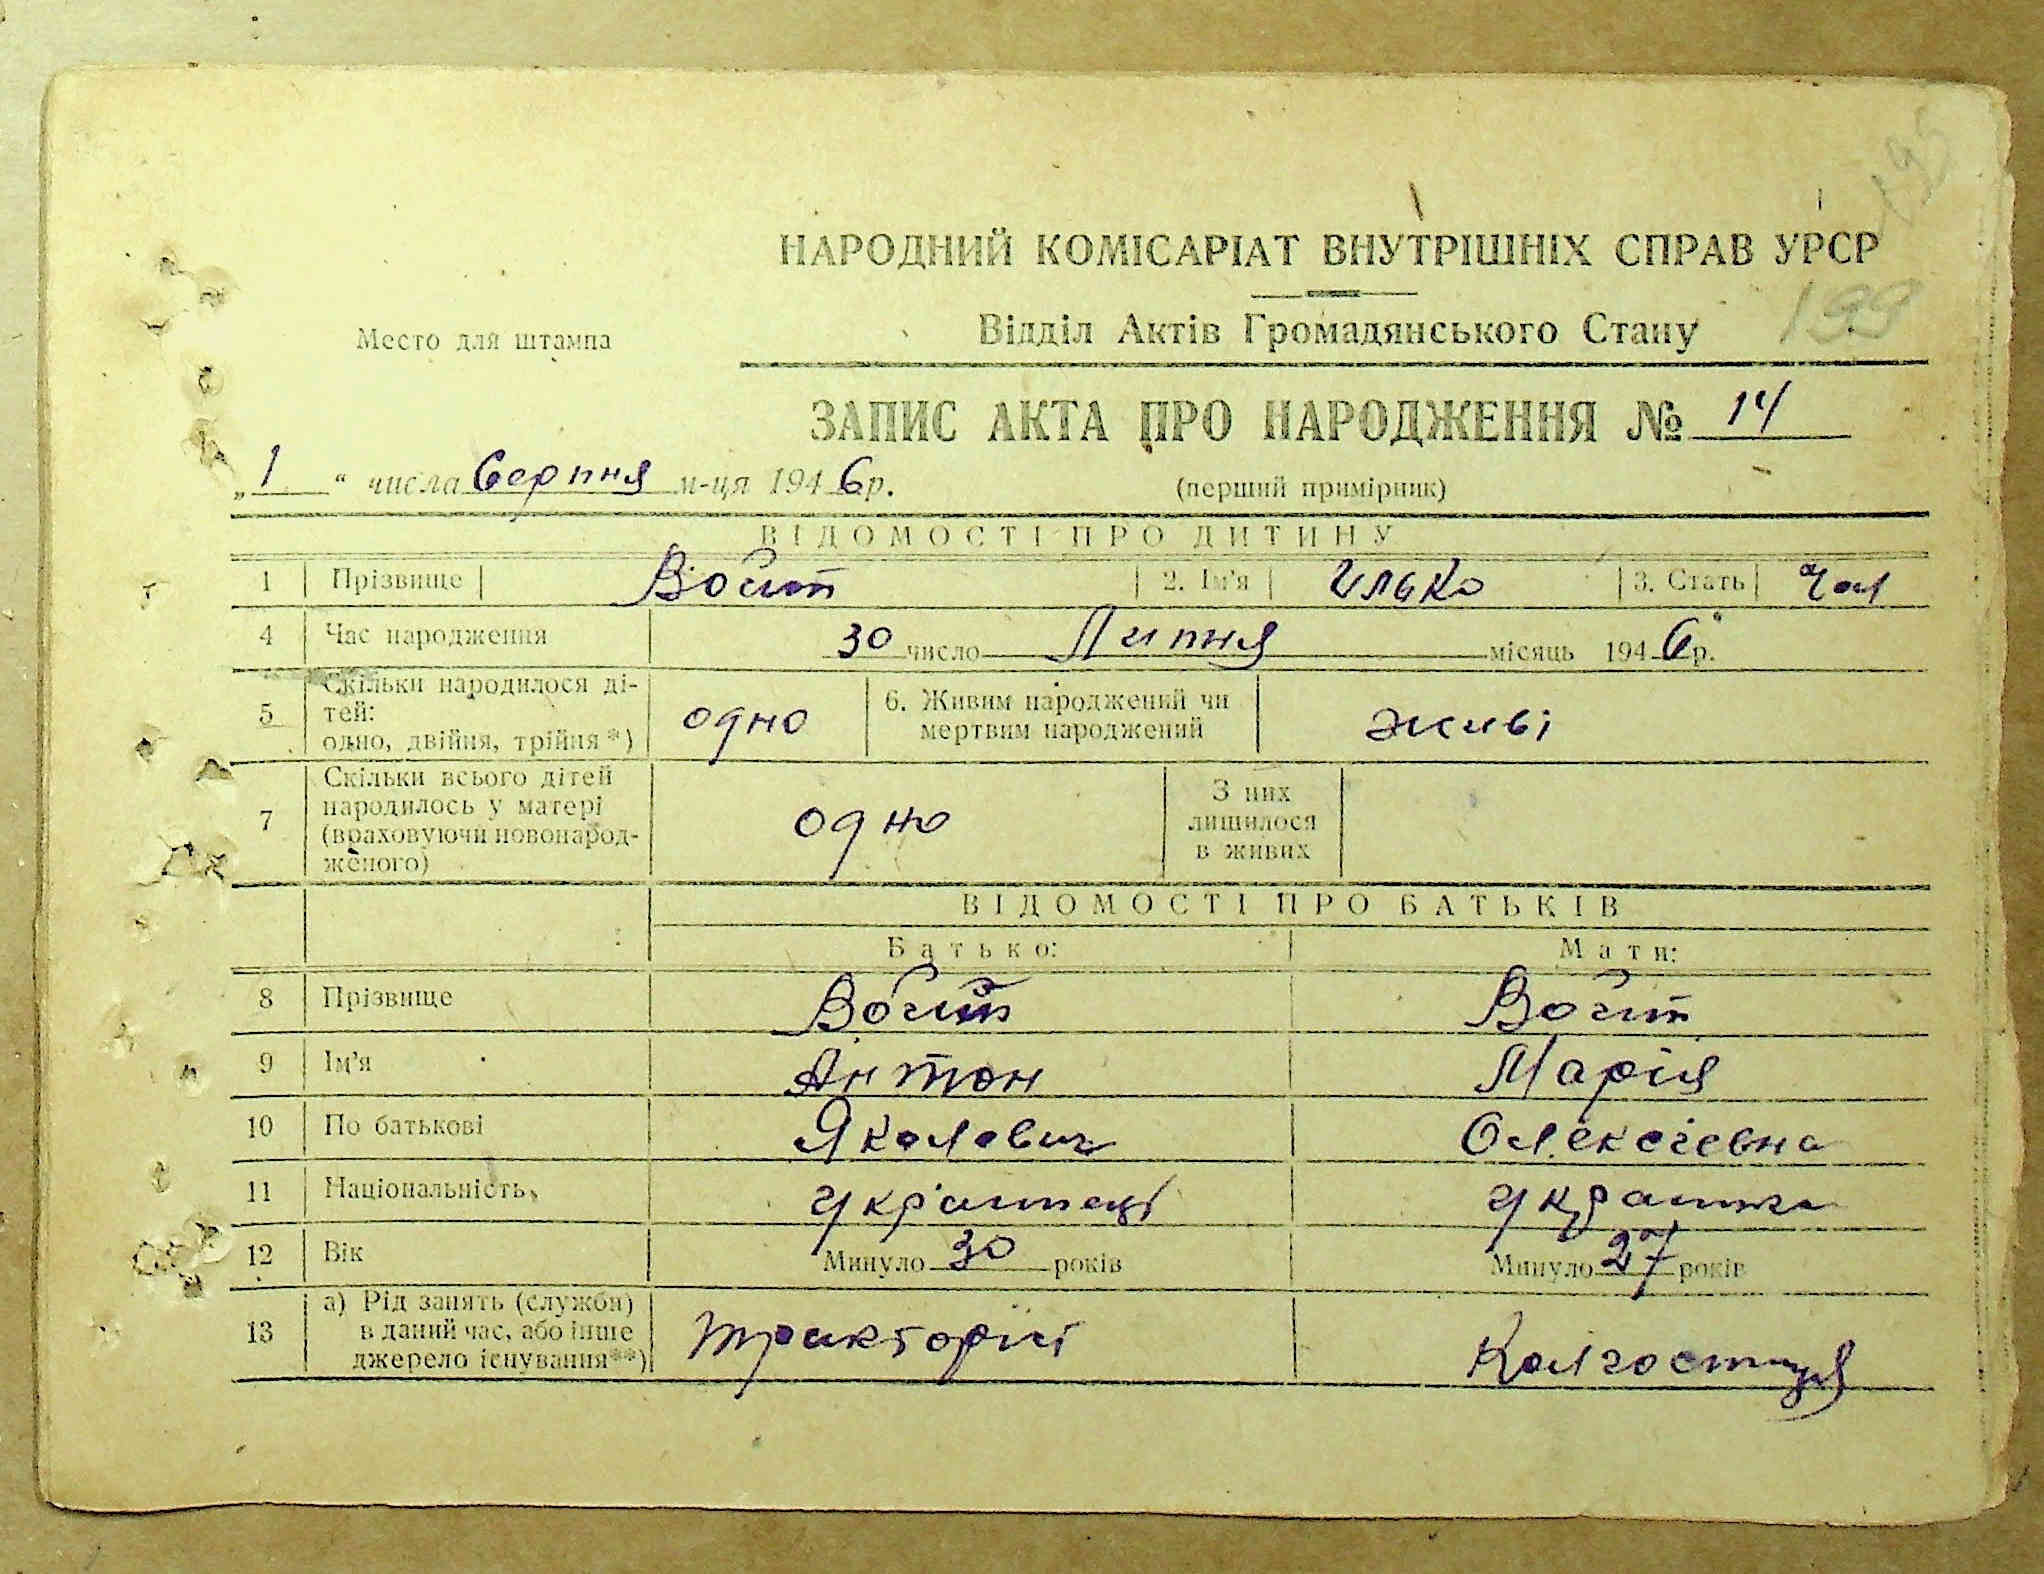 195
НАРОДНИЙ КОМІСАРІАТ ВНУТРІШНІХ СПРАВ УРСР
199
Место для штампа
Відділ Актів Громадянського Стану
ЗАПИС АКТА ПРО НАРОДЖЕННЯ № 14
„1“ числа Серпня м-ця 1946 р. (перший примірник)
ВІДОМОСТІ ПРО ДИТИНУ
1 Прізвище Войт 2. Ім'я Илько 3. Стать Чол
4 Час народження 30 число Липня місяць 1946 р.
5 Скільки народилося ді-
тей:
одно, двійня, трійня*) одно 6. Живим народжений чи
мертвим народжений живі
7 Скільки всього дітей
народилось у матері
(враховуючи новонарод-
женого) одно З них
лишилося
в живих
ВІДОМОСТІ ПРО БАТЬКІВ
Батько: Мати:
8 Прізвище Войт Войт
9 Ім'я Антон Марія
10 По батькові Яколович Олексієвна
11 Національність
12 Вік Минуло 30 років Минуло 27 років
13 а) Рід занять (служби)
в даний час, або інше
джерело існування**) тракторіст Колгоспниця